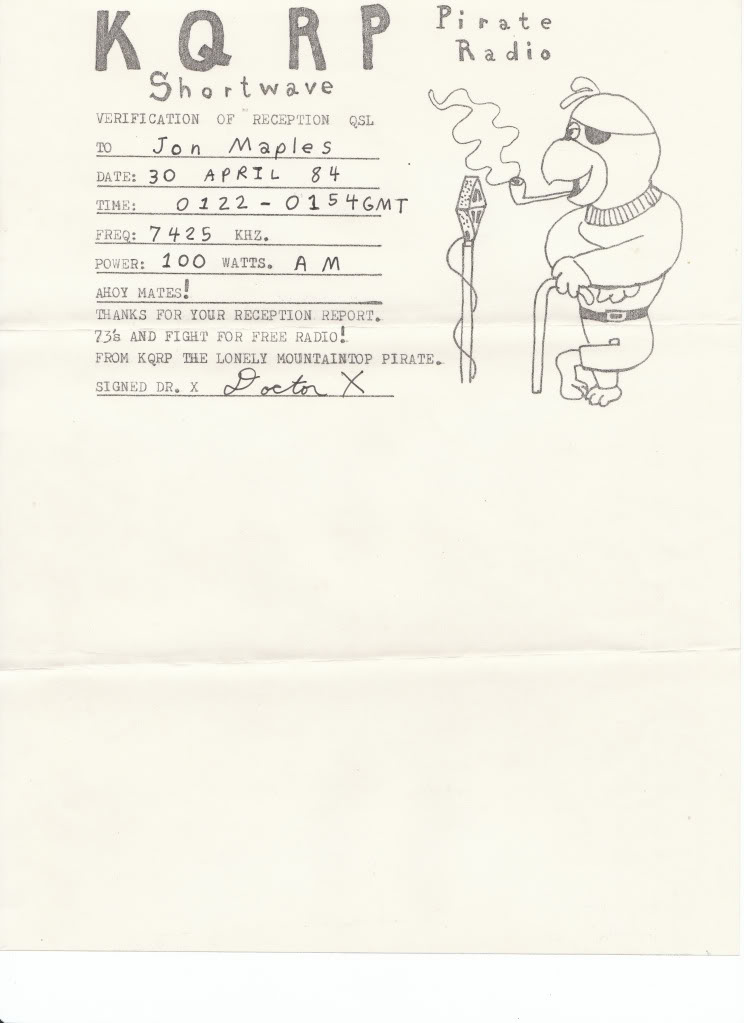 KQRP Pirate
Radio
Shortwave
VERIFICATION OF RECEPTION QSL
TO Jon Maples
DATE: 30 APRIL 84
TIME: 0122 - 0154GMT
FREQ: 7425 KHZ.
POWER: 100 WATTS. AM
AHOY MATES!
THANKS FOR YOUR RECEPTION REPORT.
73's AND FIGHT FOR FREE RADIO!
FROM KQRP THE LONELY MOUNTAINTOP PIRATE.
SIGNED DR. X Doctor X